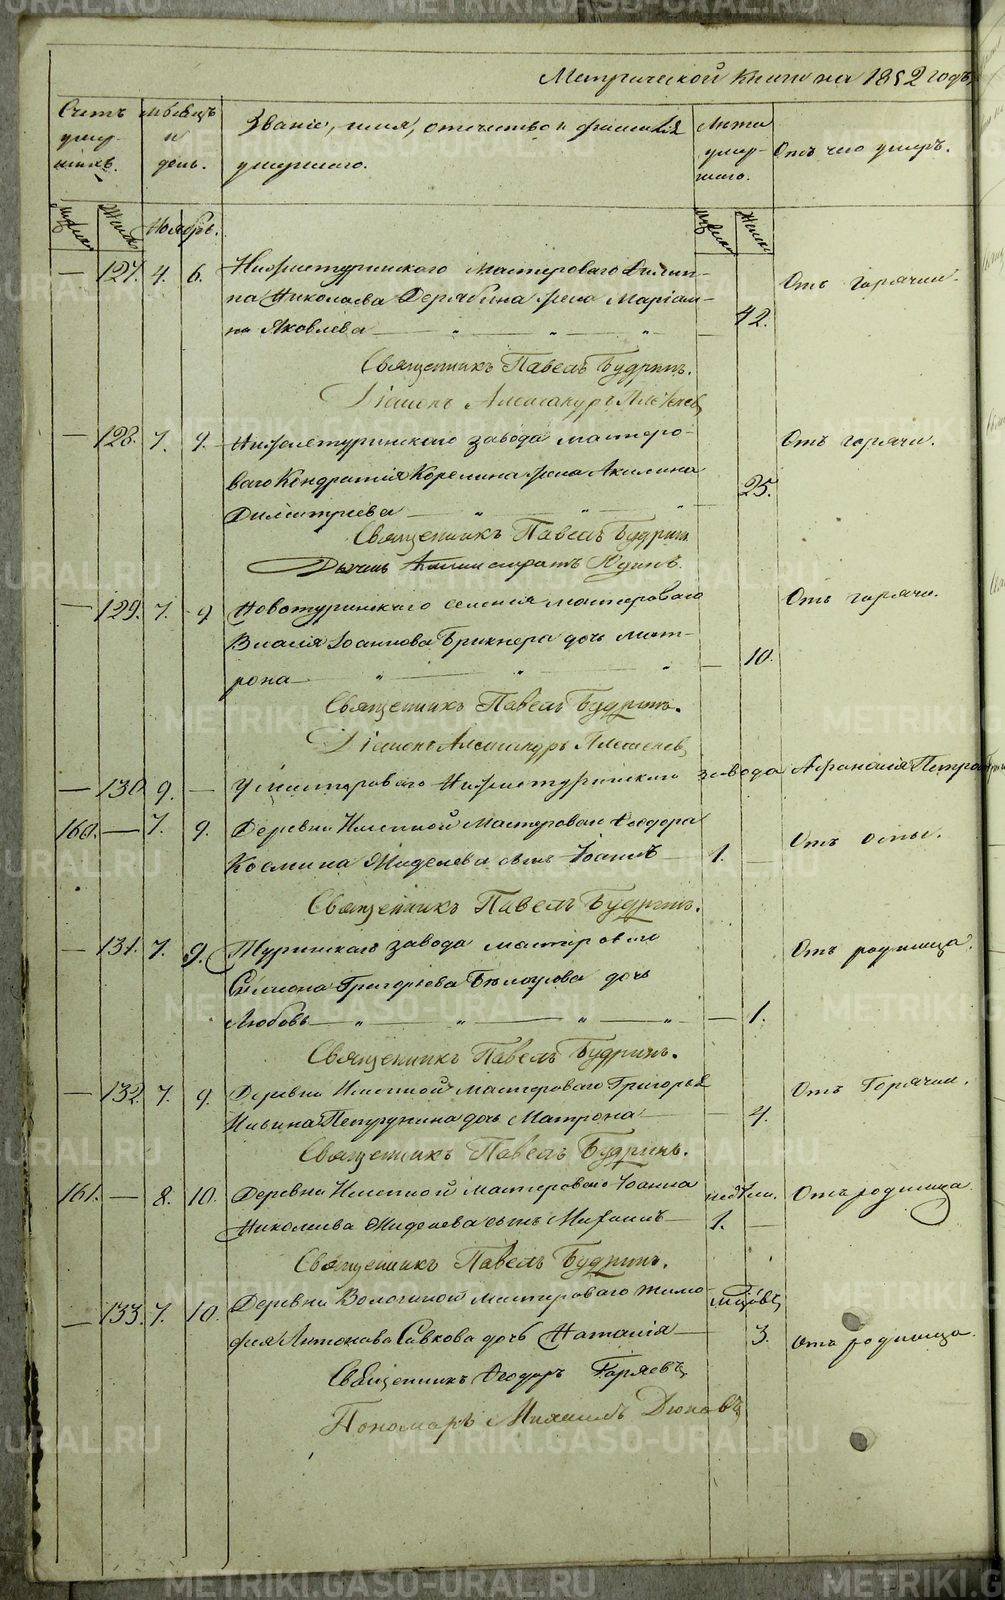 Метрической книги на 1852 годъ
Счетъ умер-шихъ.
Мѣсяцъ и день.
Званіе, имя, отчество и фамилія умершаго.
Лѣта умер-шаго.
Отъ чего умеръ.
Ноябрь.
— 127. 4. 6. Нижнетуринскаго мастероваго Филип-
па Николаева Дерябина жена Маріам-
на Яковлева — 42. Отъ горячки.
Священникъ Павелъ Будринъ.
Діаконъ Александръ
— 128. 7. 9. Нижнетуринскаго завода мастеро-
ваго Кондратія Корелина жена Акилина
Димитріева — 25. Отъ горячки.
Священникъ Павелъ Будринъ
Дьячекъ Юдинъ.
— 129. 7. 9 Новотуринскаго селенія мастероваго
Власія Іоаннова дочь Мат-
рона — 10. Отъ горячки.
Священникъ Павелъ Будринъ.
Діаконъ Александръ
— 130. 9. — У мастероваго Нижнетуринскаго завода Афанасія Петрова
160. — 7. 9. Деревни Именной мастероваго Ѳеодора
Космина сынъ Іоаннъ — 1. — Отъ оспы.
Священникъ Павелъ Будринъ.
— 131. 7. 9. Туринскаго завода мастероваго
Симеона Григорьева Бѣлоусова дочь
Любовь — 1. Отъ родимца.
Священникъ Павелъ Будринъ.
— 132. 7. 9. Деревни Именной мастероваго Григорья
Ильина дочь Матрона — 4. Отъ Горячки.
Священникъ Павелъ Будринъ.
161. — 8. 10. Деревни Именной мастероваго Іоанна недѣли. Отъ родимца
Николаева сынъ Михаилъ — 1. —
Священникъ Павелъ Будринъ.
— 133. 7. 10. Деревни Вологиной мастероваго Тимо-
фея Антонова Савкова дочь Наталія — 3. Отъ родимца.
Священникъ Ѳеодоръ Горяевъ
Пономарь Михаилъ